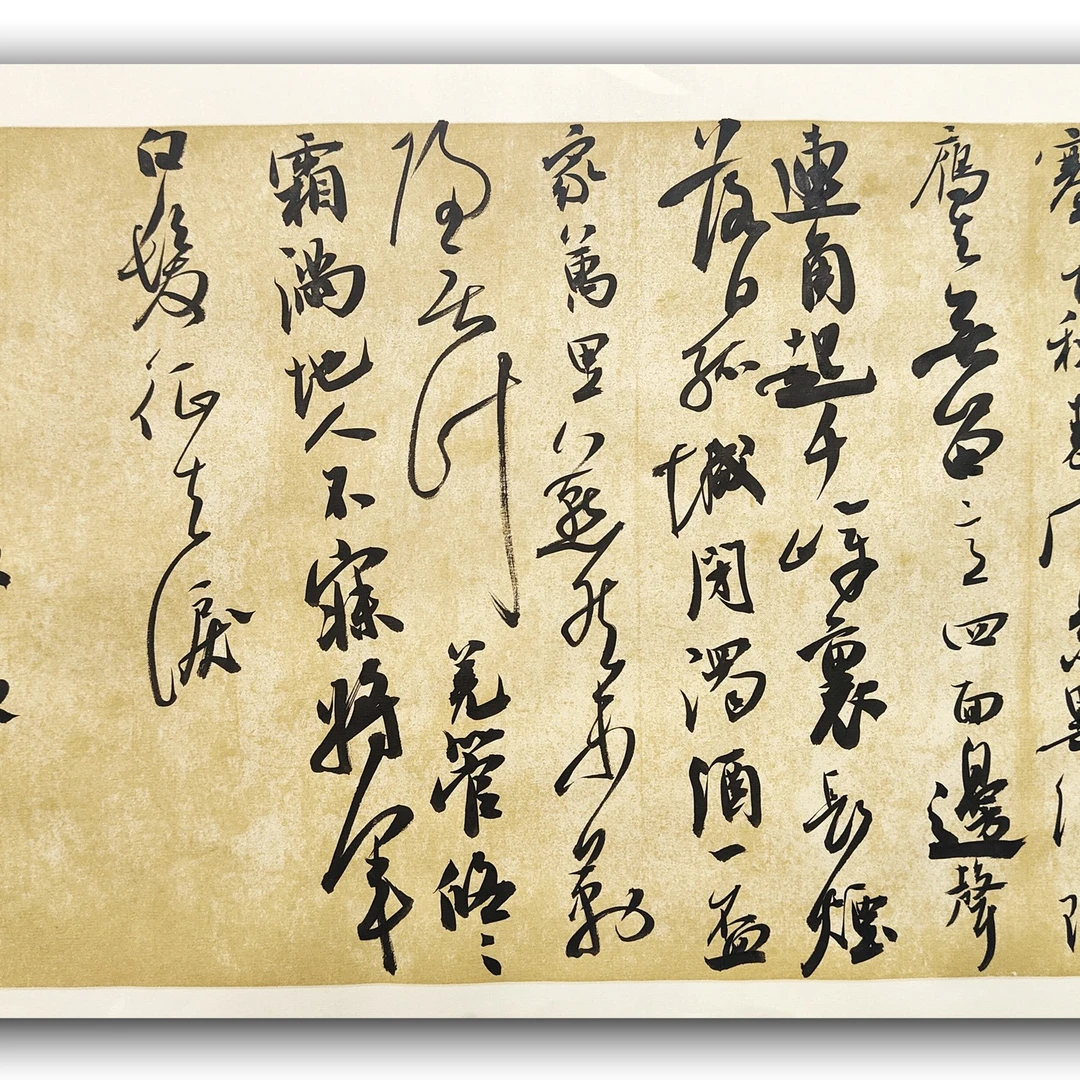 雁去無留意四面邊聲
連角起千嶂裏長煙
落日孤城閉濁酒一盃
家萬里燕然未勒
歸無計羌管悠〻
霜滿地人不寐將軍
白髮征夫淚